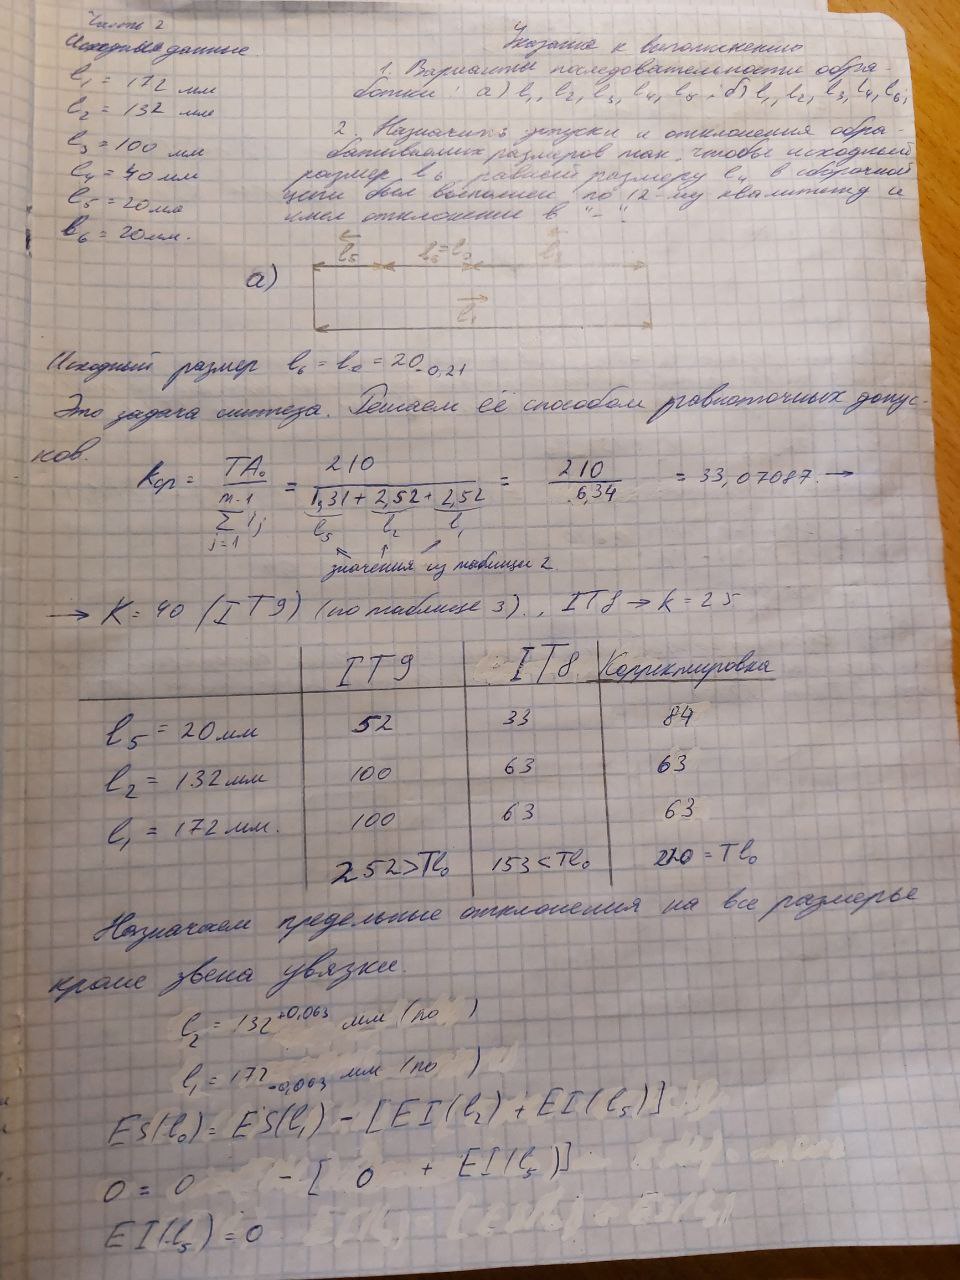 Часть 2
Исходные данные
l1 = 172 мм
l2 = 132 мм
l3 = 100 мм
l4 = 40 мм
l5 = 20 мм
l6 = 20 мм.
Указания к выполнению
1. Варианты последовательности обра-
ботки: а) l1, l2, l3, l4, l5; б) l1, l2, l3, l4, l6;
2. Назначить допуски и отклонения обра-
батываемых размеров так, чтобы исходный
размер l6 равный размеру l4 в сборочной
цепи был выполнен по 12-му квалитету и
имел отклонение в "-".
а)
l5 l6=l0 l2
l1
Исходный размер l6 = l0 = 20 -0,21
Это задача синтеза. Решаем её способом равноточных допус-
ков.
Kср = TA0 / Σ(j=1, m-1) ij = 210 / (1,31 + 2,52 + 2,52) = 210 / 6,34 = 33,07087 →
l5 l2 l1
значения из таблицы 2
→ K = 40 (IT9) (по таблице 3)., IT8 → k = 25
IT9 IT8 Корректировка
l5 = 20 мм 52 33 84
l2 = 132 мм 100 63 63
l1 = 172 мм. 100 63 63
252 > Tl0 153 < Tl0 210 = Tl0
Назначаем предельные отклонения на все размеры
кроме звена увязки.
l2 = 132 +0,063 мм (по )
l1 = 172 -0,063 мм (по )
ES(l0) = ES(l1) - [EI(l2) + EI(l5)]
0 = 0 - [0 + EI(l5)]
EI(l5) = 0